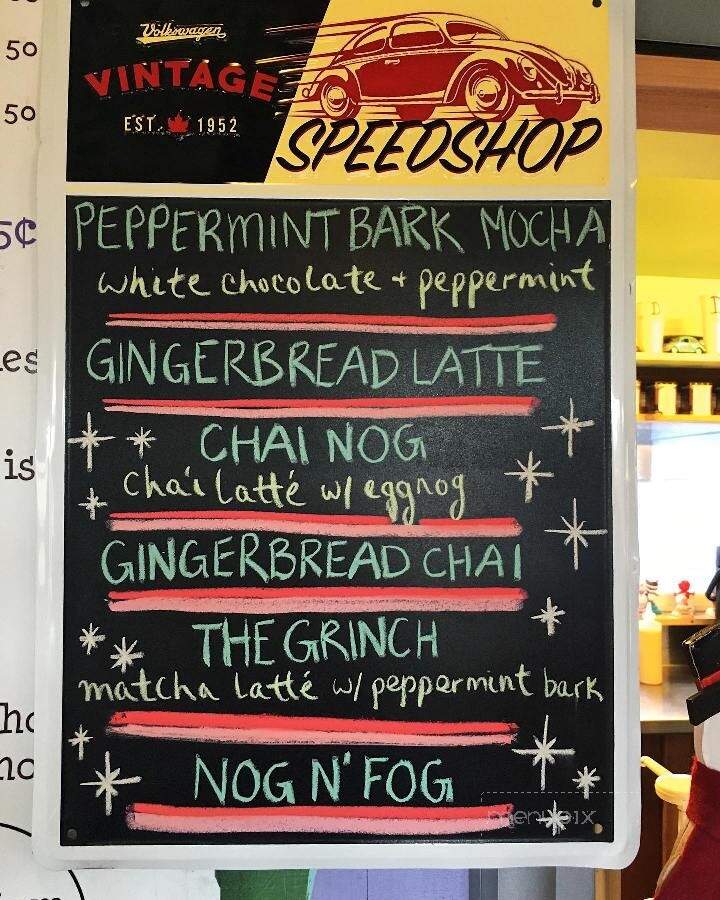 Volkswagen
VINTAGE
EST. 1952
SPEEDSHOP
50
50
5¢
es
is
PEPPERMINT BARK MOCHA
white chocolate + peppermint
GINGERBREAD LATTE
CHAI NOG
chai latté w/ eggnog
GINGERBREAD CHAI
THE GRINCH
matcha latté w/ peppermint bark
NOG N' FOG
menupix